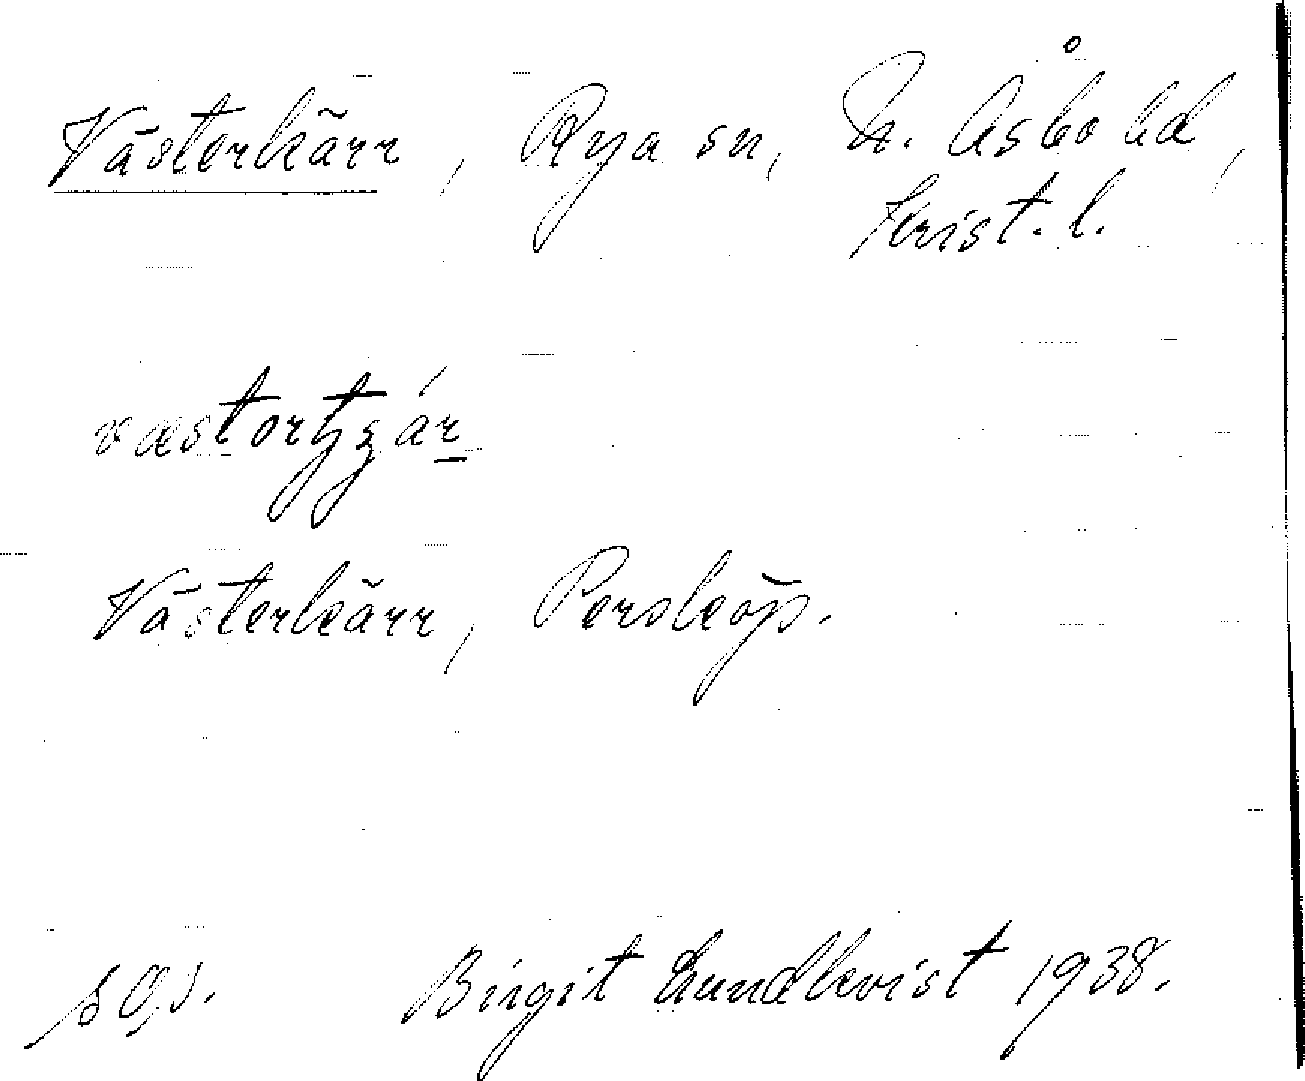 Västerkärr, Rya sn, N. Åsbo hd,
Krist. l.
Västerkärr, Perstorp.
Birgit Lundkvist 1938.